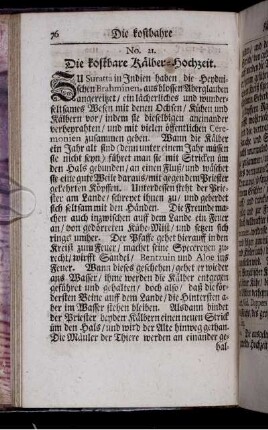 76 Die kostbahre
No. 21.
Die kostbare Kälber-Hochzeit.
ZU Suratta in Indien haben die Heydni-
schen Brahminen, aus blossen Aberglauben
angereitzet / ein lächerliches und wunder-
seltsames Wesen mit denen Ochsen / Kühen und
Kälbern vor / indem sie dieselbigen aneinander
verheyrahten / und mit vielen öffentlichen Cere-
monien zusammen geben. Wann die Kälber
ein Jahr alt sind (denn unter einem Jahr müssen
sie nicht seyn) führet man sie mit Stricken üm
den Hals gebunden / an einen Fluß / und wäschet
sie eine gute Weile daraus / mit gegen dem Priester
gekehrten Köpffen. Unterdessen steht der Prie-
ster am Lande / schreyet ihnen zu / und geberdet
sich seltsam mit den Händen. Die Freunde ma-
chen auch inzwischen auff dem Lande ein Feuer
an / von gedörreten Kühe-Mist / und setzen sich
rings umher. Der Pfaffe gehet hierauff in den
Kreiß zum Feuer / machet seine Specereyen zu-
recht / wirfft Sandel / Bentzuin und Aloe ins
Feuer. Wann dieses geschehen / gehet er wieder
ans Wasser / ihme werden die Kälber entgegen
geführet und gehalten / doch also / daß die for-
dersten Beine auff dem Lande / die Hintersten a-
ber im Wasser stehen bleiben. Alsdann bindet
der Priester beyden Kälbern einen neuen Strick
üm den Hals / und wird der Alte hinweg gethan.
Die Mäuler der Thiere werden an einander ge-
hal-